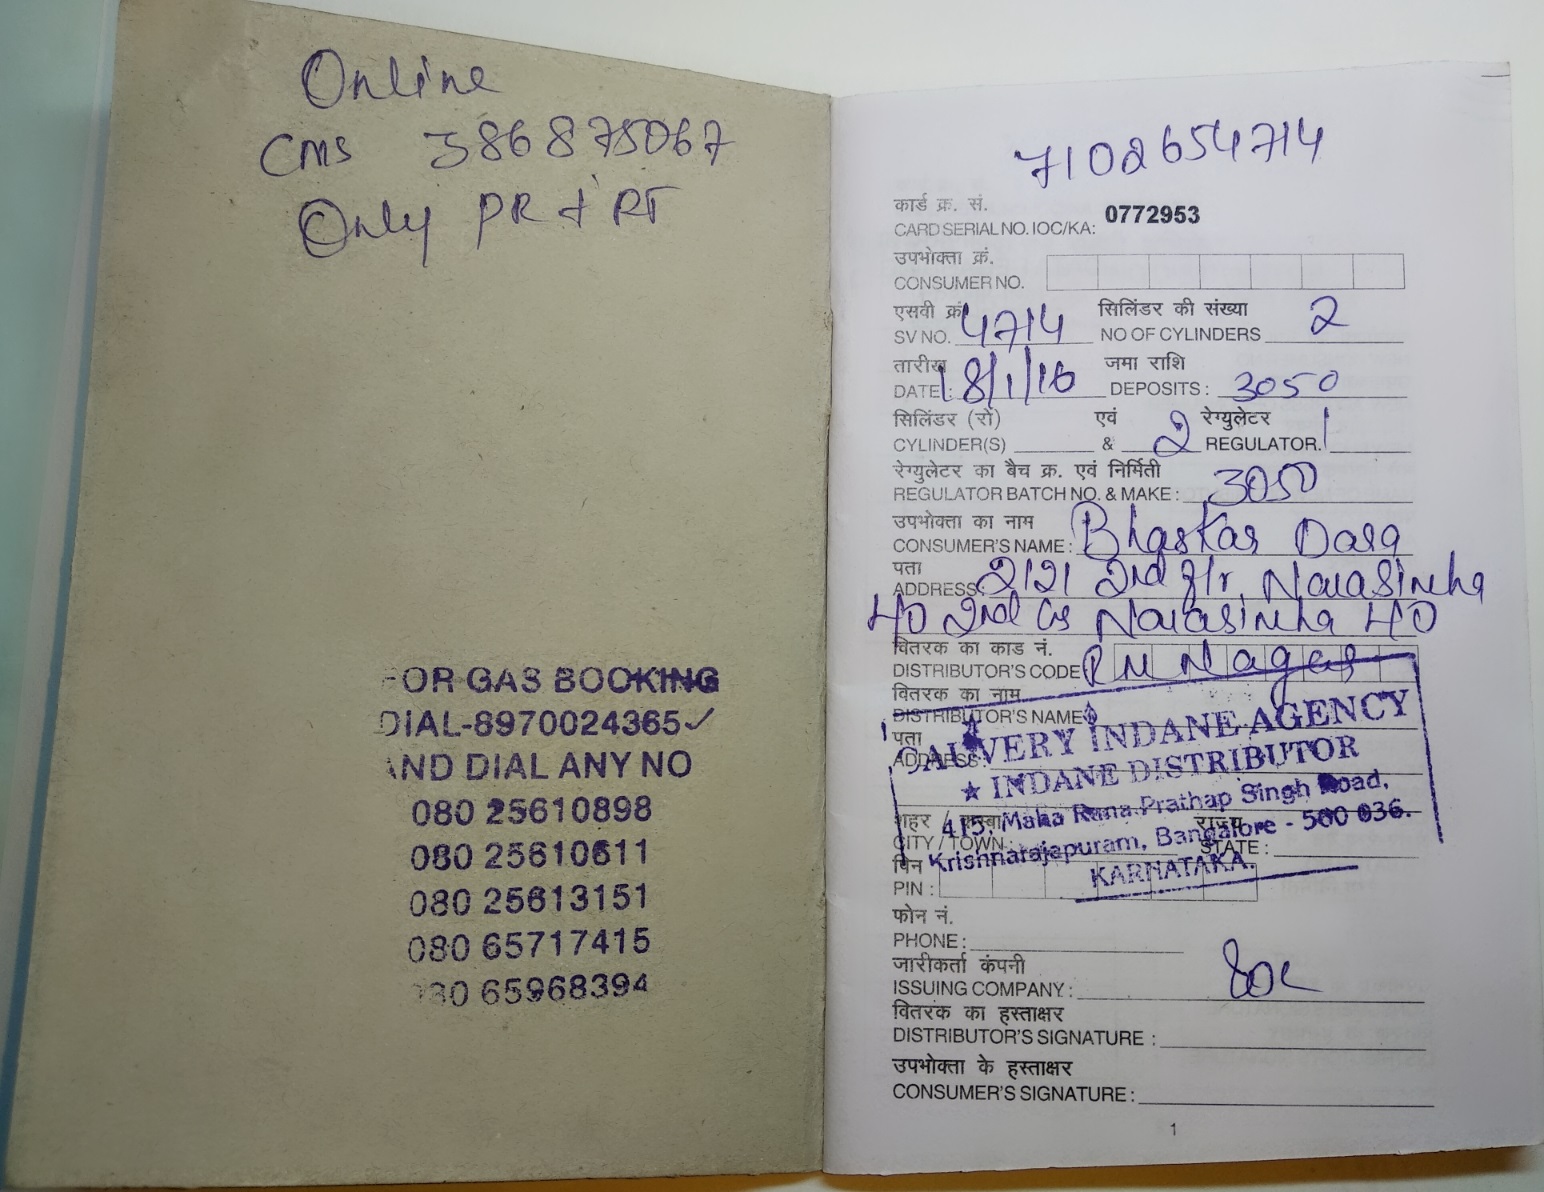 Online
CMS 386875067
Only PR + RT
FOR GAS BOOKING
DIAL-8970024365✓
AND DIAL ANY NO
080 25610898
080 25610611
080 25613151
080 65717415
080 65968394
7102654714
कार्ड क्र. सं.
CARD SERIAL NO. IOC/KA: 0772953
उपभोक्ता क्रं.
CONSUMER NO.
एसवी क्रं सिलिंडर की संख्या
SV NO. 4714 NO OF CYLINDERS 2
तारीख जमा राशि
DATE: 18/1/16 DEPOSITS: 3050
सिलिंडर (रों) एवं रेग्युलेटर
CYLINDER(S) & 2 REGULATOR. 1
रेग्युलेटर का बैच क्र. एवं निर्मिती
REGULATOR BATCH NO. & MAKE: 3050
उपभोक्ता का नाम
CONSUMER'S NAME: Bhaskar Dasa
पता
ADDRESS: 2121 2nd flr, Narasimha
2nd Narasimha
वितरक का काड नं.
DISTRIBUTOR'S CODE Nagar
वितरक का नाम
DISTRIBUTOR'S NAME
पता
ADDRESS:
CAUVERY INDANE AGENCY
★ INDANE DISTRIBUTOR
415, Maha Rana Prathap Singh Road,
Krishnarajapuram, Bangalore - 560 036.
KARNATAKA.
शहर / कस्बा राज्य
CITY / TOWN: STATE:
पिन
PIN:
फोन नं.
PHONE:
जारीकर्ता कंपनी
ISSUING COMPANY:
वितरक का हस्ताक्षर
DISTRIBUTOR'S SIGNATURE :
उपभोक्ता के हस्ताक्षर
CONSUMER'S SIGNATURE :
1